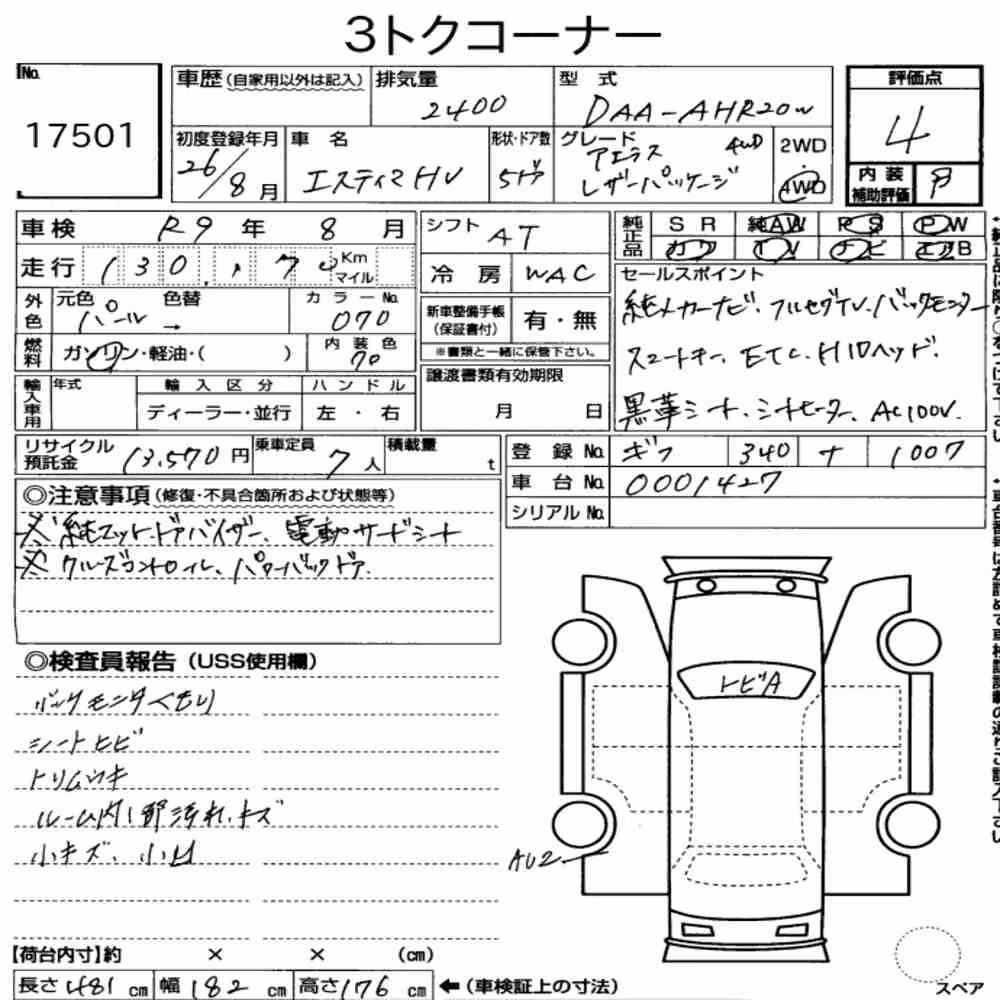 3トクコーナー
No.
17501
車歴(自家用以外は記入)
排気量
2400
型 式
DAA-AHR20W
評価点
4
初度登録年月
26/8月
車 名
エスティマHV
形状・ドア数
5ドア
グレード
アエラス 4WD
レザーパッケージ
2WD
4WD
内装
補助評価
車検 R9年 8月
シフト AT
純正品
SR 純AW PS PW
カワ TV ナビ エアB
走行 130,7
Km
マイル
冷房 WAC
外色
元色 パール
色替 →
カラーNo.
070
新車整備手帳
(保証書付)
有・無
※書類と一緒に保管下さい。
燃料 ガソリン・軽油・( )
内装色
70
セールスポイント
純メーカーナビ、フルセグTV、バックモニター
スマートキー、ETC、HIDヘッド、
黒革シート、シートヒーター、AC100V.
輸入車用
年式
輸入区分
ハンドル
ディーラー・並行
左・右
譲渡書類有効期限
月 日
リサイクル
預託金
13,570円
乗車定員
7人
積載量
t
登録No. ギフ 340 ナ 1007
車台No. 0001427
シリアルNo.
◎注意事項(修復・不具合箇所および状態等)
純フロアマット、ドアバイザー、電動サードシート
クルーズコントロール、パワーバックドア.
◎検査員報告(USS使用欄)
バックモニタくもり
シートヒビ
トリムウキ
ルーム内1部汚れ、キズ
小キズ、小凹
トビA
AU2
【荷台内寸】約 × × (cm)
長さ481cm 幅182cm 高さ176cm ←(車検証上の寸法)
スペア